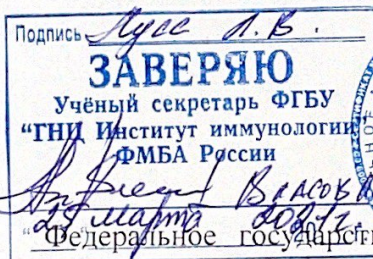 Подпись Лусс Л. В.
ЗАВЕРЯЮ
Учёный секретарь ФГБУ
"ГНЦ Институт иммунологии"
ФМБА России
Власов
"25" марта
Федеральное государств